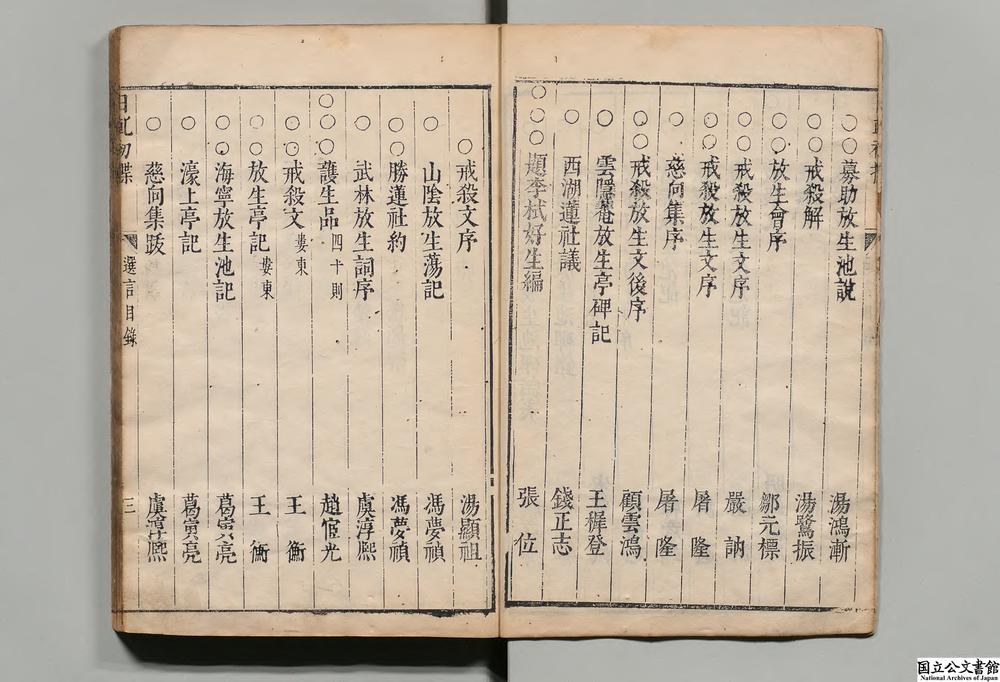 ○○募助放生池說 湯鴻漸
○○戒殺解 湯鷺振
○○放生會序 鄒元標
○○戒殺放生文序 嚴訥
○○戒殺放生文序 屠隆
○慈向集序 屠隆
○○戒殺放生文後序 顧雲鴻
○雲隱菴放生亭碑記 王穉登
○西湖蓮社議 錢正志
○○○題李栻好生編 張位
○戒殺文序 湯顯祖
○山陰放生蕩記 馮夢禎
○○勝蓮社約 馮夢禎
○武林放生詞序 虞淳熙
○○○護生品 四十則 趙宧光
○○戒殺文 婁東 王衡
○○放生亭記 婁東 王衡
○○海寧放生池記 葛寅亮
○濠上亭記 葛寅亮
○慈向集跋 虞淳熙
選言目錄 三
国立公文書館
National Archives of Japan